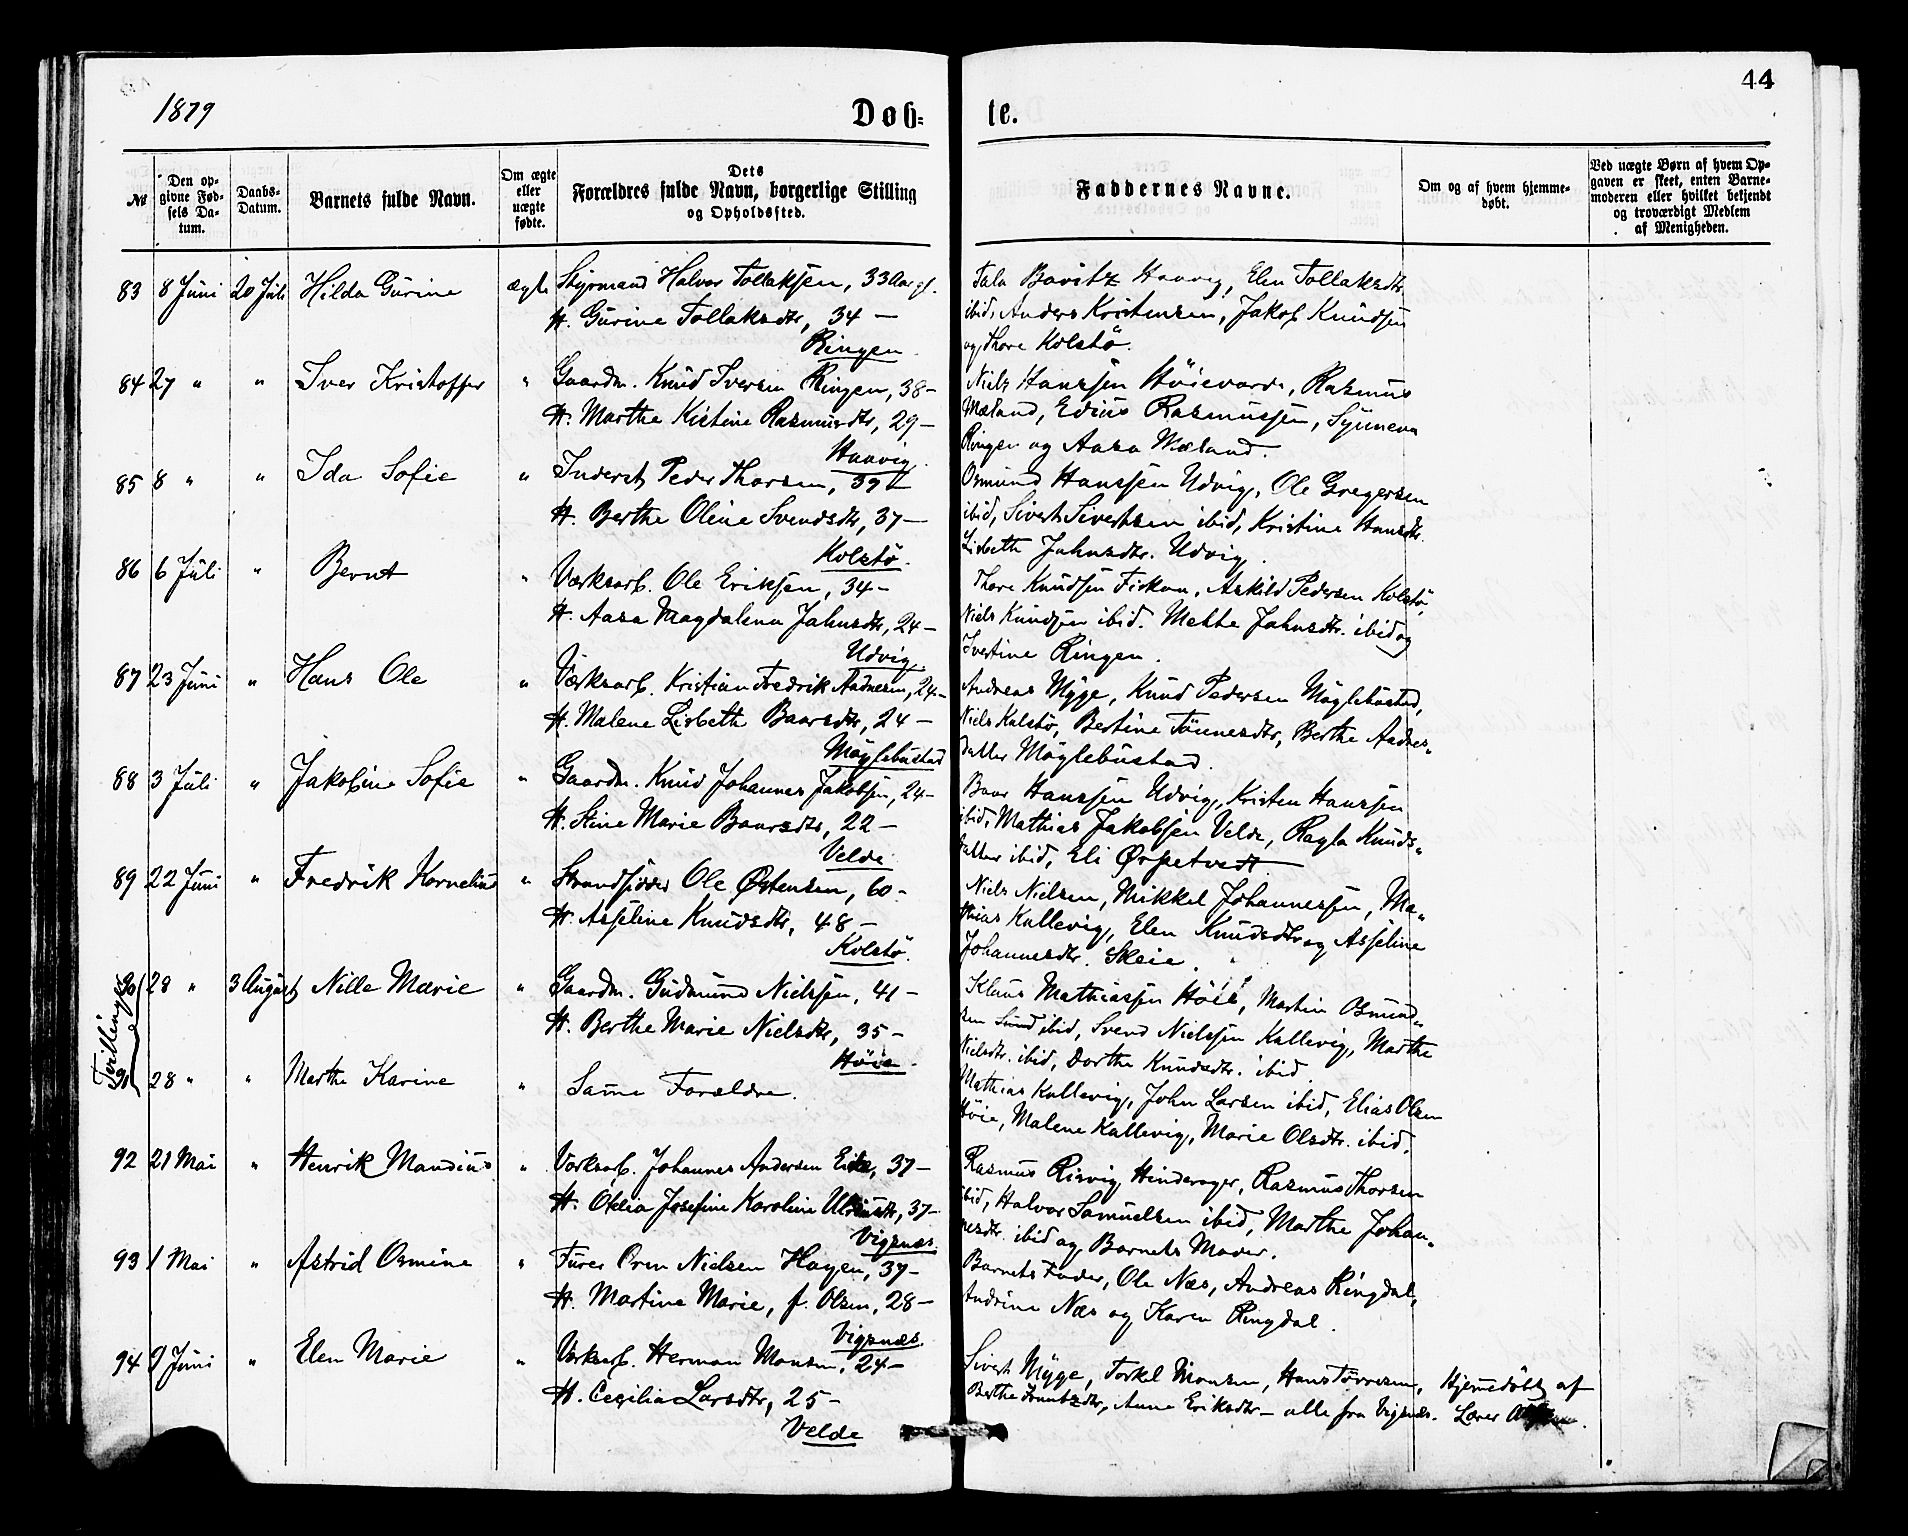 44
1879
Døb-
te.
№
Den op-
givne Fød-
sels Da-
tum.
Daabs-
Datum.
Barnets fulde Navn.
Om ægte
eller
uægte
fødte.
Dets
Forældres fulde Navn, borgerlige Stilling
og Opholdssted.
Faddernes Navne.
Om og af hvem hjemme-
døbt.
Ved uægte Børn af hvem Op-
gaven er skeet, enten Barne-
moderen eller hvilket bekjendt
og troværdigt Medlem
af Menigheden.
83 8 Juni 20 Juli Hilda Gurine ægte Styrmand Halvor Tollaksen, 33 Aar gl.
H. Gurine Tollaksdtr, 34 —
Ringen.
Haavig, Elen Tollaksdtr
ibid, Anders Kristensen, Jakob Knudsen
og Thore Kolstø.
84 27 " " Iver Kristoffer " Gaardm. Knud Iversen Ringen, 38 —
H. Marthe Kistine Rasmusdtr, 29 —
Haavig.
Niels Hanssen Høievarde, Rasmus
Mæland, Edius Rasmussen, Synneva
Ringen og Aasa Mæland.
85 8 " " Ida Sofie " Inderst Peder Thorsen, 39 —
H. Berthe Oline Svendsdtr, 37 —
Kolstø.
Osmund Hanssen Udvig, Ole Gregersen
ibid, Sivert Sivertsen ibid, Kristine Hansdtr.
Lisbeth Jahnsdtr. Udvig.
86 6 Juli " Bernt " Værksarb. Ole Eriksen, 34 —
H. Aasa Magdalena Jahnsdtr, 24 —
Udvig.
Thore Knudsen Fiskaa, Askild Pedersen Kolstø,
Niels Knudsen ibid. Mette Jahnsdtr. ibid og
Ivertine Ringen.
87 23 Juni " Hans Ole " Værksarb. Kristian Fredrik Andresen, 24 —
H. Malene Lisbeth Baarsdtr, 24 —
Møglebustad
Andreas Myge, Knud Pedersen Møglebustad,
Niels Kolstø, Bertine Tønnesdtr, Berthe Andres-
datter Møglebustad.
88 3 Juli " Jakobine Sofie " Gaardm. Knud Johannes Jakobsen, 24 —
H. Stine Marie Baarsdtr, 22 —
Velde.
Baar Hanssen Udvig, Kristen Hanssen
ibid, Mathias Jakobsen Velde, Ragla Knuds-
datter ibid, Eli Ørpetvedt
89 22 Juni " Fredrik Kornelius " Strandsidder Ole Østensen, 60 —
H. Asseline Knudsdtr, 48 —
Kolstø.
Niels Nielsen, Mikkel Johannessen, Ma-
thias Kallevig, Elen Knudsdtr og Asseline
Johannesdtr. Skeie.
Tvillinger
90 28 " 3 August Nille Marie " Gaardm. Gudmund Nielsen, 41 —
H. Berthe Marie Nielsdtr, 35 —
Høie.
Klaus Mathiassen Høie, Martin Osmund-
sen Sund ibid, Svend Nielssen Kallevig, Marthe
Nielsdtr. ibid, Dorthe Knudsdtr. ibid.
91 28 " " Marthe Karine " Samme Forældre.
Mathias Kallevig, John Larsen ibid, Elias Olsen
Høie, Malene Kallevig, Marie Olsdtr. ibid.
92 21 Mai " Henrik Mandius " Værksarb. Johannes Andersen Eide, 37 —
H. Otelia Josefine Karoline 37 —
Vigsnæs.
Rasmus Risvig Hinderager, Rasmus Thorsen
ibid, Halvor Samuelsen ibid, Marthe Johan-
nesdtr. ibid og Barnets Moder.
93 1 Mai " Astrid Osmine " Furer Oren Nielsen Hagen, 37 —
H. Martine Marie, f. Olsen, 28 —
Vigsnæs.
Barnets Fader, Ole Næs, Andreas Ringdal,
Andrine Næs og Karen Ringdal.
94 9 Juni " Elen Marie " Værksarb. Herman Monsen, 24 —
H. Cecilia Larsdtr, 25 —
Velde
Sivert Myge, Torkel Monsen, Hans Tørresen,
Berthe Anne Eriksdtr — alle fra Vigsnæs.
Hjemmedøbt af
Lærer